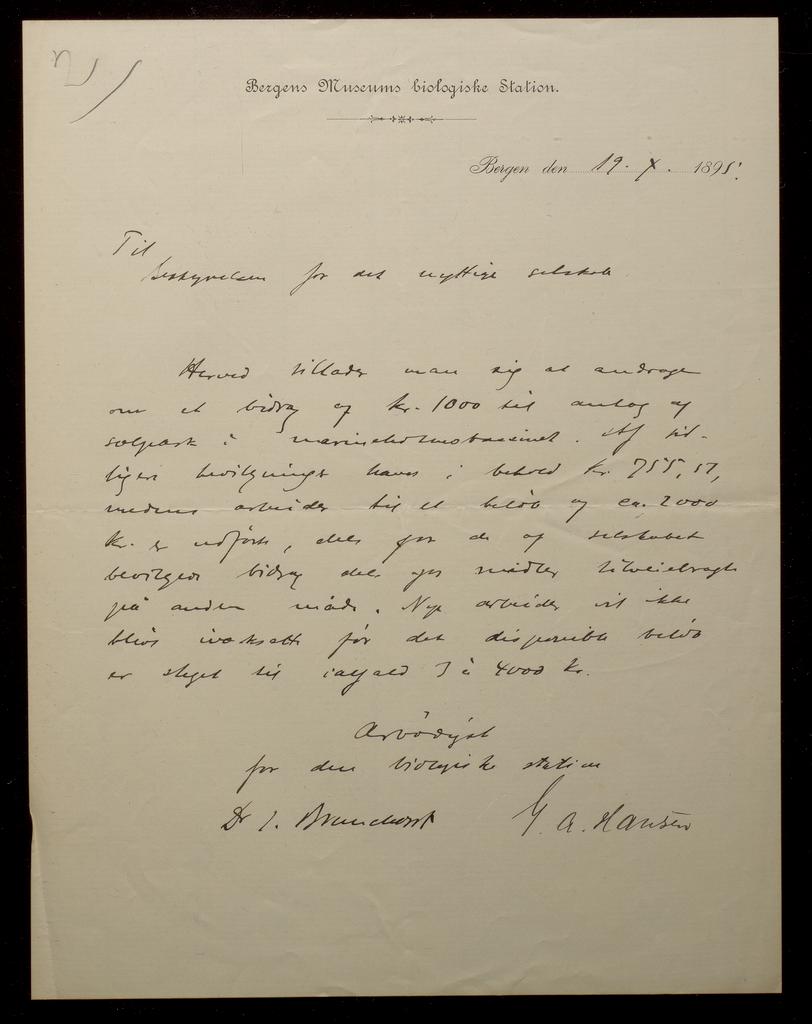 Bergens Museums biologiske Station.
Bergen den 19. X. 1895.
Til
bestyrelsen for det nyttige selskab
Herved tillader man sig at andrage
om et bidrag af kr. 1000 til anlæg af
sælpark i marineholmsbassinet. Af tid-
ligere bevilgninger haves i behold kr. 755,57,
medens arbeider til et beløb af ca. 2000
kr. er udført, dels for de af selskabet
bevilgede bidrag dels for midler tilveiebragt
på anden måde. Nye arbeider vil ikke
blive iværksatte før det disponible beløb
er steget til ialfald 3 à 4000 kr.
Ærbødigst
for den biologiske station
Dr J. Brunchorst G. A. Hansen